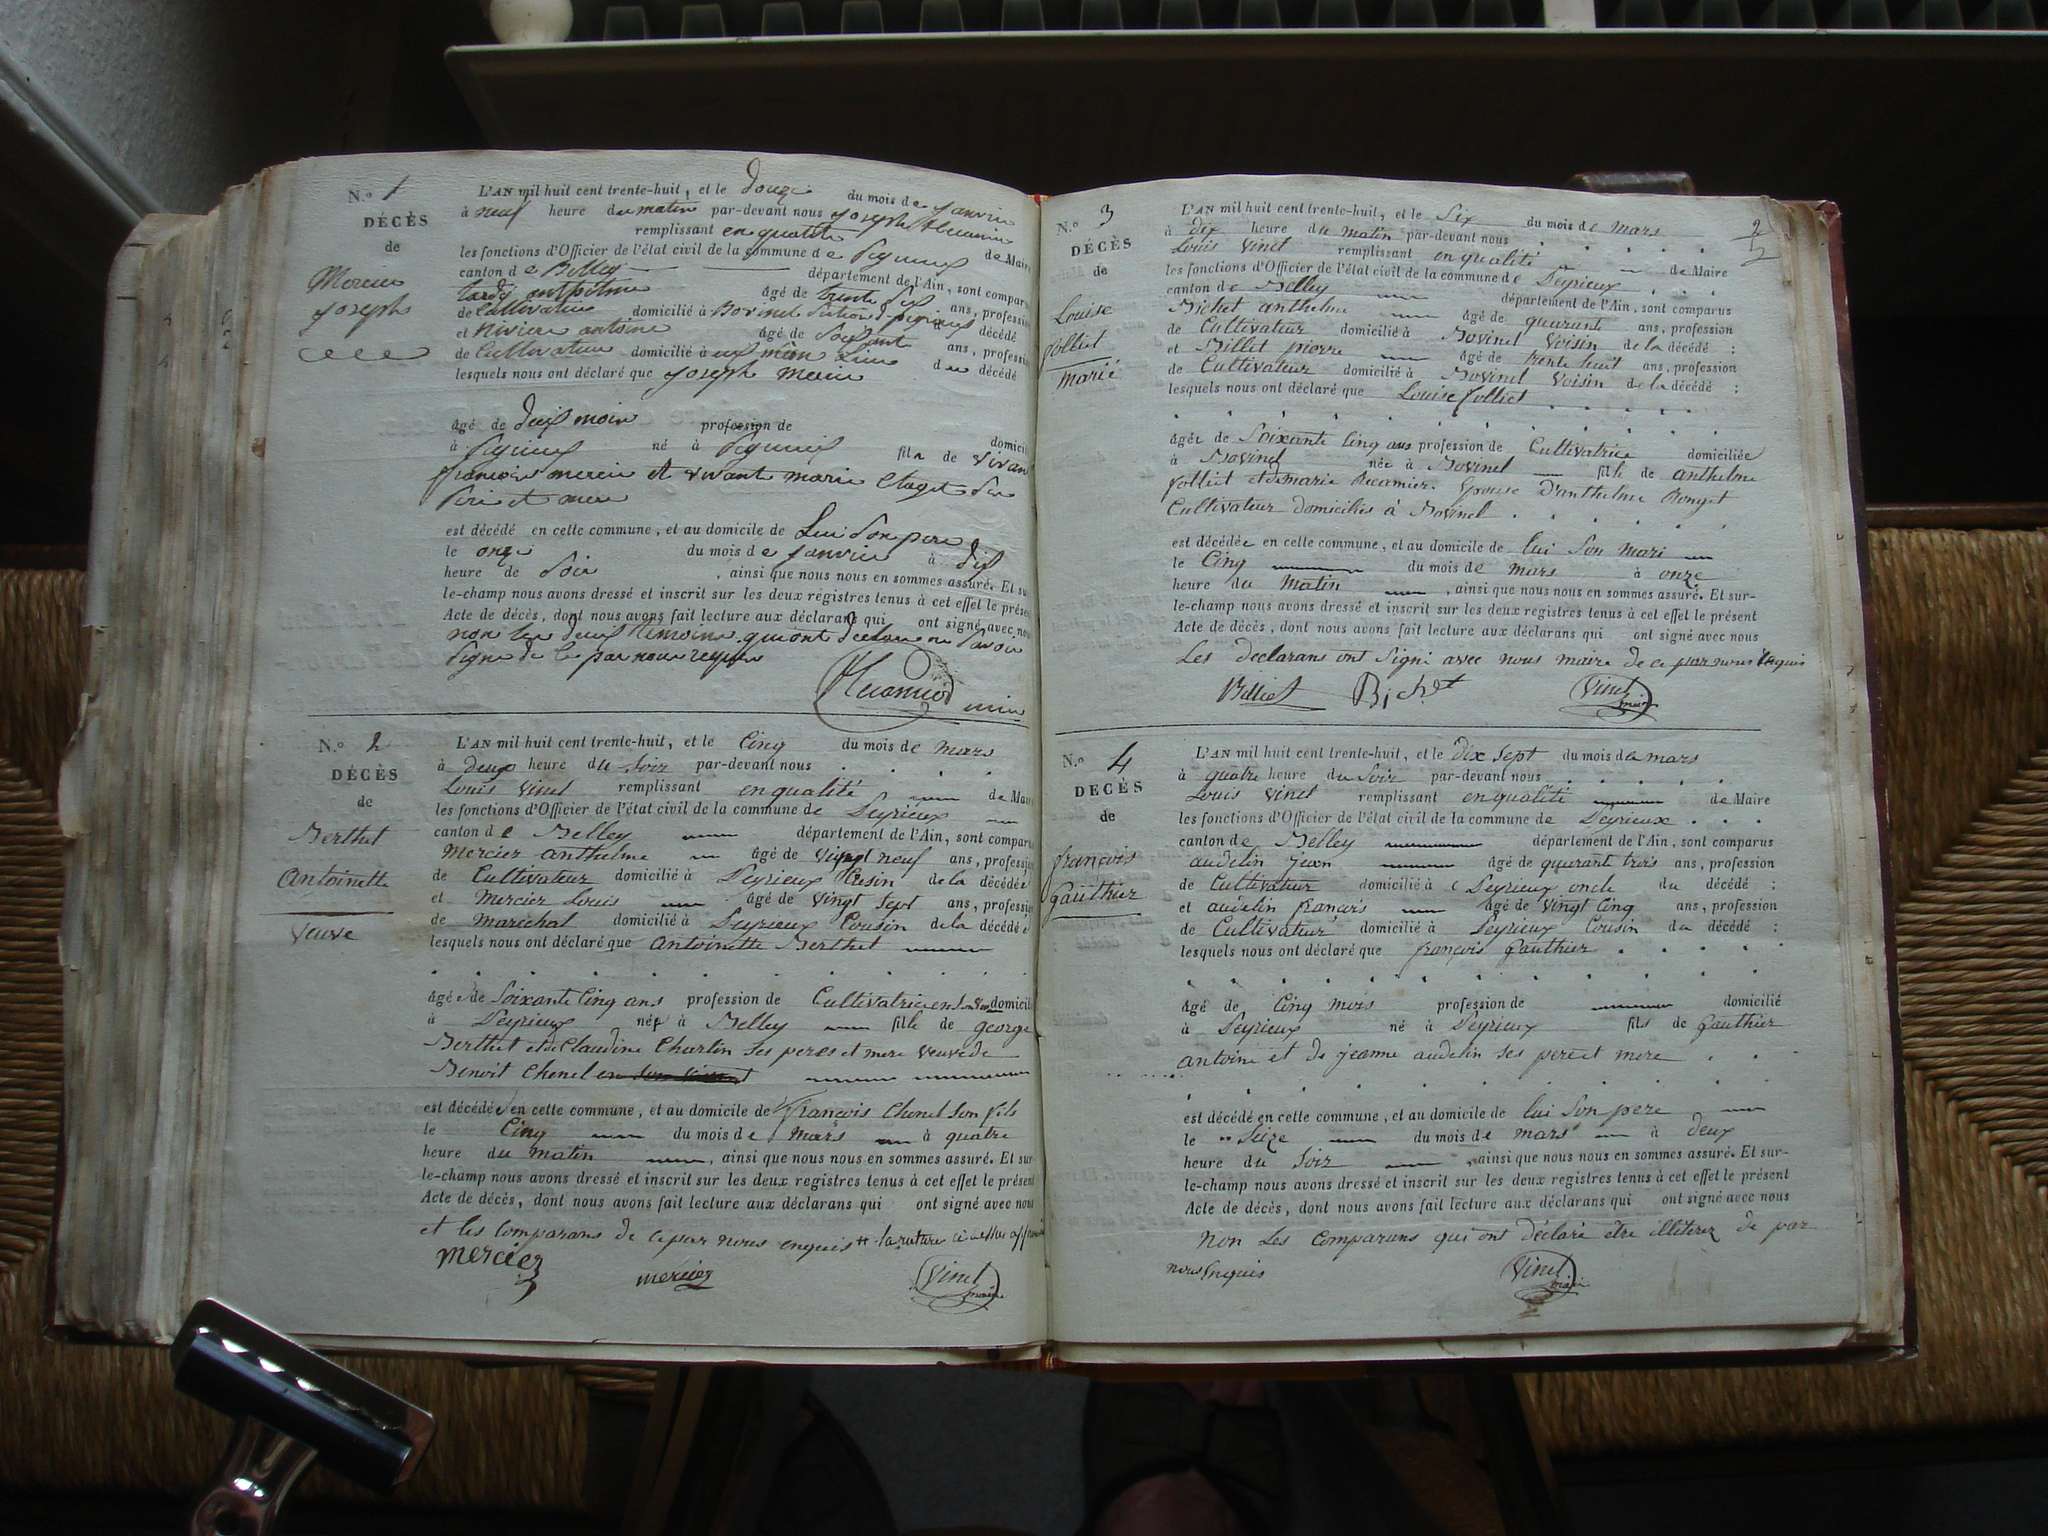 N.o 1
DÉCÈS
de
Mercier
Joseph
L'AN mil huit cent trente-huit, et le douze du mois de Janvier
à neuf heure du matin par-devant nous Joseph
remplissant en qualité de Maire
les fonctions d'Officier de l'état civil de la commune de
canton de Belley département de l'Ain, sont comparus
tardy antpelme âgé de trente six ans, profession
de Cultivateur domicilié à Bovinel décédé
et Riviere antoine âgé de soixante ans, profession
de Cultivateur domicilié à du décédé
lesquels nous ont déclaré que Joseph
âgé de deux mois profession de domicilié
à né à fils de vivant
françois mercier et vivante marie
père et mere
est décédé en cette commune, et au domicile de Lui Son pere
le onze du mois de Janvier à dix
heure de Soir, ainsi que nous nous en sommes assuré. Et sur-
le-champ nous avons dressé et inscrit sur les deux régistres tenus à cet effet le présent
Acte de décès, dont nous avons fait lecture aux déclarans qui ont signé avec nous
non les deux témoins qui ont déclaré ne Savoir
Signé de ce par nous requis
N.o 2
DÉCÈS
de
Berthet
Antoinette
Veuve
L'AN mil huit cent trente-huit, et le Cinq du mois de mars
à deux heure du Soir par-devant nous
Louis Vinet remplissant en qualité de Maire
les fonctions d'Officier de l'état civil de la commune de Peyrieux
canton de Belley département de l'Ain, sont comparus
Mercier anthelme âgé de vingt neuf ans, profession
de Cultivateur domicilié à Peyrieux Cusin de la décédée
et Mercier Louis âgé de vingt sept ans, profession
de Maréchal domicilié à Peyrieux Cousin de la décédée
lesquels nous ont déclaré que antoinette Berthet
âgée de Soixante Cinq ans profession de Cultivatrice domicilié
à Peyrieux née à Belley fille de george
Berthet et de Claudine Charlin Ses peres et mere veuve de
Benoit Chenel
est décédée en cette commune, et au domicile de françois Chenel Son fils
le Cinq du mois de Mars à quatre
heure du matin, ainsi que nous nous en sommes assuré. Et sur-
le-champ nous avons dressé et inscrit sur les deux régistres tenus à cet effet le présent
Acte de décès, dont nous avons fait lecture aux déclarans qui ont signé avec nous
et les Comparans de ce par nous enquis
mercier mercier Vinet maire
2
N.o 3
DÉCÈS
de
Louise
folliet
Marié
L'AN mil huit cent trente-huit, et le Six du mois de mars
à dix heure du matin par-devant nous
Louis Vinet remplissant en qualité de Maire
les fonctions d'Officier de l'état civil de la commune de Peyrieux
canton de Belley département de l'Ain, sont comparus
Bichet anthelme âgé de quarante ans, profession
de Cultivateur domicilié à Bovinel Voisin de la décédé
et Billet pierre âgé de trente huit ans, profession
de Cultivateur domicilié à Bovinel Voisin de la décédé
lesquels nous ont déclaré que Louise folliet
âgée de Soixante Cinq ans profession de Cultivatrice domiciliée
à Bovinel née à Bovinel fille de anthelme
folliet et de marie Recamier. Epouse D'anthelme Ronget
Cultivateur domiciliés à Bovinel
est décédée en cette commune, et au domicile de lui Son mari
le Cinq du mois de mars à onze
heure du Matin, ainsi que nous nous en sommes assuré. Et sur-
le-champ nous avons dressé et inscrit sur les deux régistres tenus à cet effet le présent
Acte de décès, dont nous avons fait lecture aux déclarans qui ont signé avec nous
Les declarans ont Signé avec nous maire de ce par nous Enquis
Billiet Bichet Vinet maire
N.o 4
DÉCÈS
de
françois
Gauthier
L'AN mil huit cent trente-huit, et le dix Sept du mois de mars
à quatre heure du Soir par-devant nous
Louis Vinet remplissant en qualité de Maire
les fonctions d'Officier de l'état civil de la commune de Peyrieux
canton de Belley département de l'Ain, sont comparus
audelin jean âgé de quarante trois ans, profession
de Cultivateur domicilié à Peyrieux oncle du décédé
et audelin françois âgé de Vingt Cinq ans, profession
de Cultivateur domicilié à Peyrieux Cousin du décédé
lesquels nous ont déclaré que françois Gauthier
âgé de Cinq mois profession de domicilié
à Peyrieux né à Peyrieux fils de Gauthier
antoine et de jeanne audelin Ses pere et mere
est décédé en cette commune, et au domicile de lui Son pere
le Seize du mois de mars à deux
heure du Soir, ainsi que nous nous en sommes assuré. Et sur-
le-champ nous avons dressé et inscrit sur les deux régistres tenus à cet effet le présent
Acte de décès, dont nous avons fait lecture aux déclarans qui ont signé avec nous
Non Les Comparans qui ont déclaré être illiterez de par
nous Enquis Vinet maire